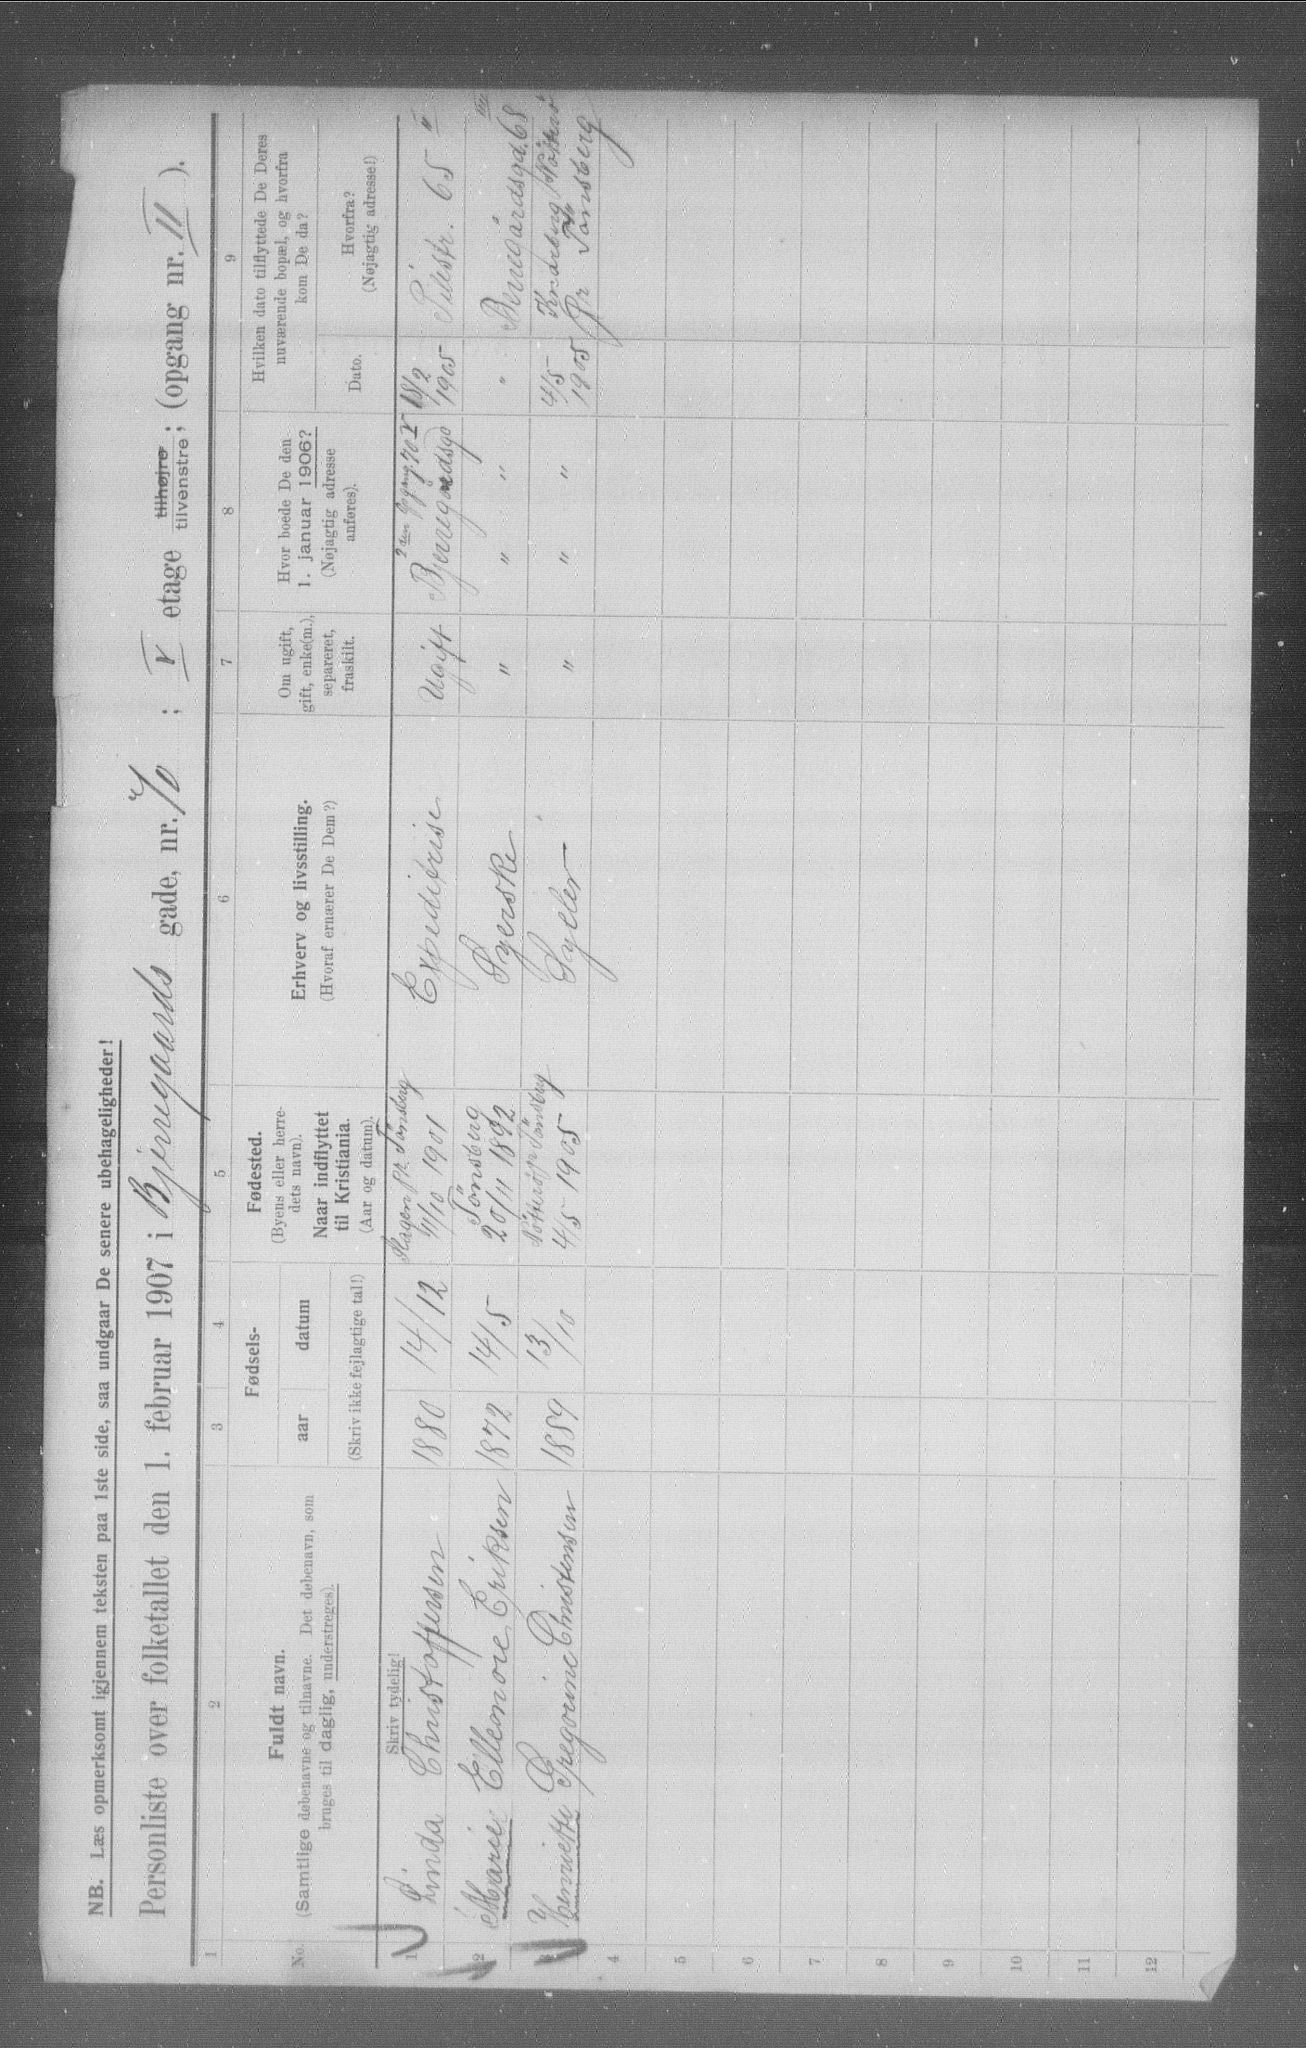 NB. Læs opmerksomt igjennem teksten paa 1ste side, saa undgaar De senere ubehageligheder!
Personliste over folketallet den 1. februar 1907 i Bjerregaards gade, nr. 70; V etage tilhøjre tilvenstre; (opgang nr. II).
1 2 3 4 5 6 7 8 9
No.
Fuldt navn.
(Samtlige døbenavne og tilnavne. Det døbenavn, som
bruges til daglig, understreges).
Fødsels-
aar datum
(Skriv ikke fejlagtige tal!)
Fødested.
(Byens eller herre-
dets navn).
Naar indflyttet
til Kristiania.
(Aar og datum).
Erhverv og livsstilling.
(Hvoraf ernærer De Dem?)
Om ugift,
gift, enke(m.),
separeret,
fraskilt.
Hvor boede De den
1. januar 1906?
(Nøjagtig adresse
anføres).
Hvilken dato tilflyttede De Deres
nuværende bopæl, og hvorfra
kom De da?
Dato.
Hvorfra?
(Nøjagtig adresse!)
Skriv tydelig!
1 Linda Christoffersen 1880 14/12 Slagen pr. Tönsberg
11/10 1901 Expeditrise Ugift 2den Opgang 70 V
Bjerregaardsgd 18/2
1905 Pilestr. 65 II
2 Marie Ellenore Eriksen 1872 14/5 Tönsberg
20/11 1892 Syerske " " " " Berregårdsgd. 68
3 Henriette Gregorine Christensen 1859 13/10 Nötterö pr Tönsberg
4/5 1905 Syller " " " 4/5
1905 Knarberg Nötterö
Pr Tönsberg
4
5
6
7
8
9
10
11
12